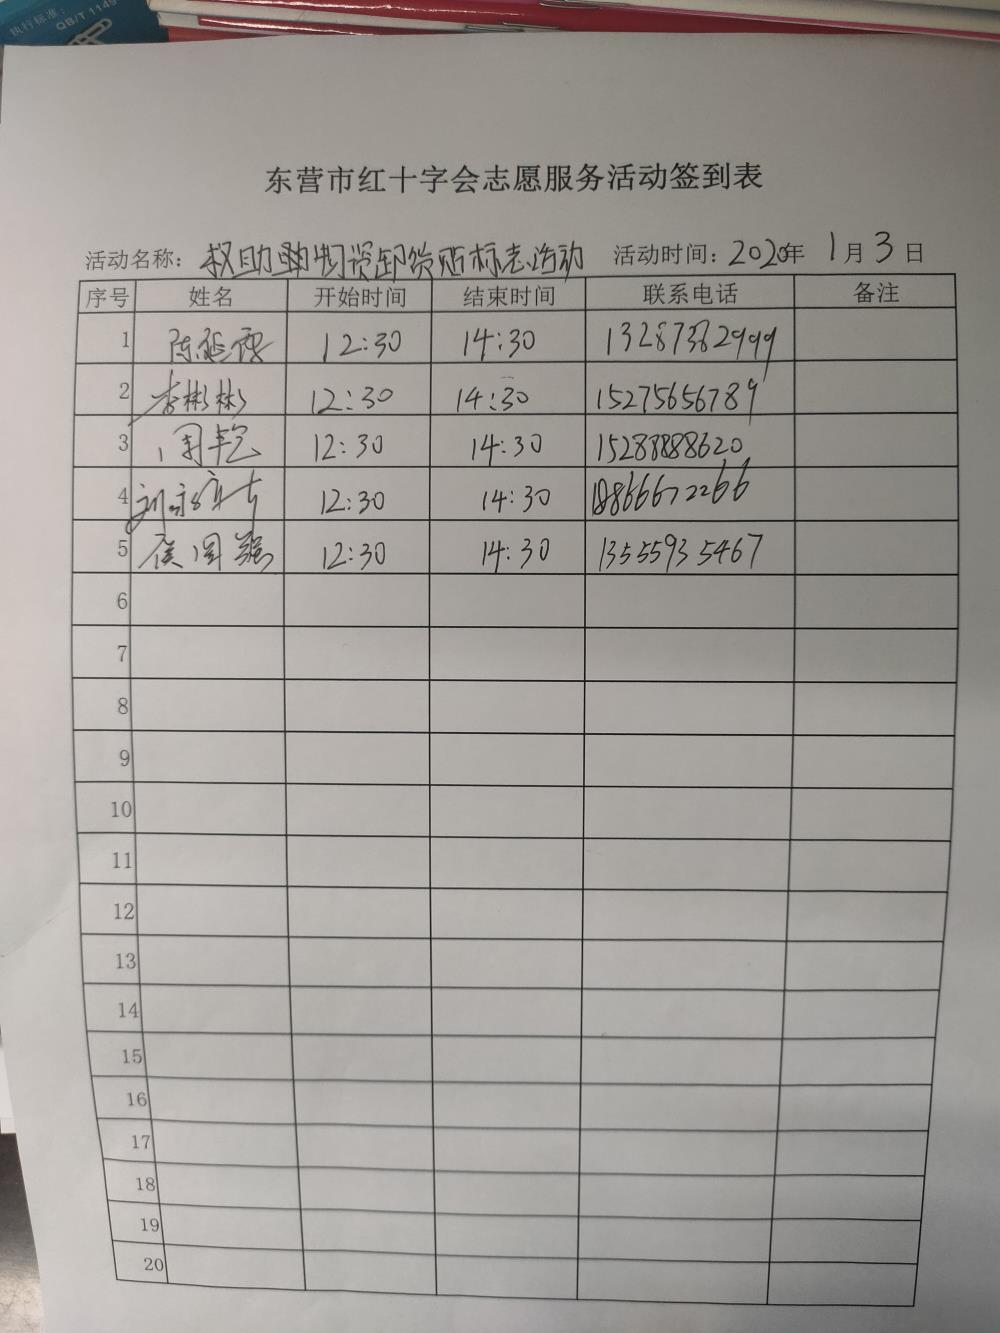 执行标准:
QB/T 1149
东营市红十字会志愿服务活动签到表
活动名称: 救助物资卸货贴标志活动 活动时间: 2020年 1月 3日
序号 姓名 开始时间 结束时间 联系电话 备注
1 陈延霞 12:30 14:30 13287382999
2 李彬彬 12:30 14:30 15275656789
3 周 12:30 14:30 15288888620
4 刘 12:30 14:30 18866672266
5 侯国强 12:30 14:30 13555935467
6
7
8
9
10
11
12
13
14
15
16
17
18
19
20